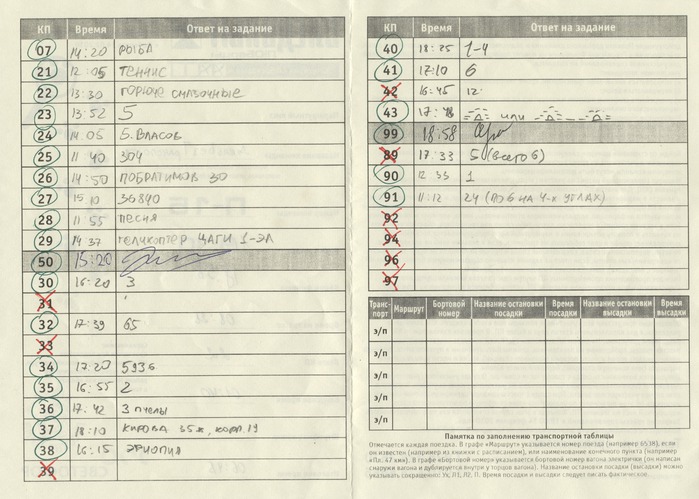 КП Время Ответ на задание
07 14:20 РЫБА
21 12 05 ТЕННИС
22 13:30 ГОРЮЧЕ СМАЗОЧНЫЕ
23 13:52 5
24 14 05 Б. ВЛАСОВ
25 11 40 304
26 14:50 ПОБРАТИМОВ 30
27 15 10 36840
28 11 55 ПЕСНЯ
29 14 37 ГЕЛИКОПТЕР ЦАГИ 1-ЭА
50 15:20
30 16-20 3
31
32 17:39 65
33
34 17:20 5936
35 16:55 2
36 17.42 3 ПЧЕЛЫ
37 18:10 КИРОВА 35ж, КОРП. 19
38 16:15 ЭФИОПИЯ
39
КП Время Ответ на задание
40 18:25 1-4
41 17:10 6
42 16:45 12
43 17: ИЛИ
99 18:58
89 17.33 5 (ВСЕГО 6)
90 12 33 1
91 11:12 24 (НА 4-Х УГЛАХ)
92
94
96
97
Транспорт Маршрут Бортовой номер Название остановки посадки Время посадки Название остановки высадки Время высадки
э/п
э/п
э/п
э/п
э/п
Памятка по заполнению транспортной таблицы
Отмечается каждая поездка. В графе «Маршрут» указывается номер поезда (например 6538), если
он известен (например из книжки с расписанием), или наименование конечного пункта (например
«Пл. 47 км»). В графе «Бортовой номер» указывается бортовой номер вагона электрички (он написан
снаружи вагона и дублируется внутри у торцов вагона). Название остановки посадки (высадки) можно
указывать сокращённо: Ух, Л1, Л2, П. Время посадки и высадки следует писать фактическое.